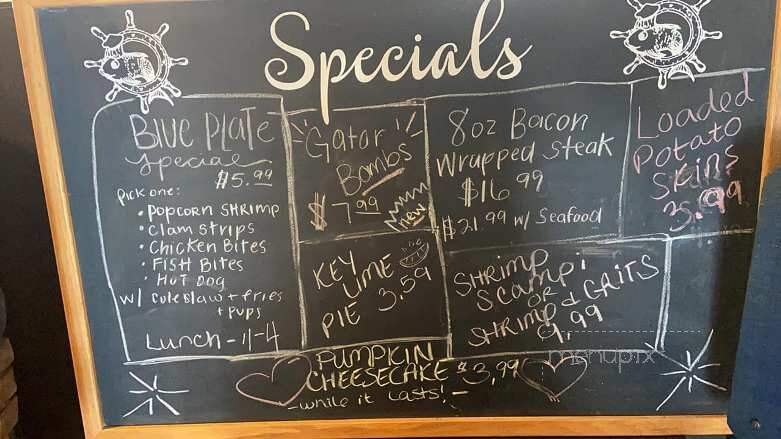 Specials
BLUE PLATE
Special
$5.99
Pick one:
• POPCORN SHRIMP
• Clam Strips
• Chicken Bites
• FISH BITES
• HOT DOG
w/ Coleslaw + fries
+ pups
Lunch - 11-4
Gator
Bombs
$7.99
new
8oz Bacon
Wrapped Steak
$16.99
$21.99 w/ Seafood
Loaded
Potato
Skins
3.99
KEY
LIME
PIE 3.59
SHRIMP
Scampi
OR
SHRIMP & GRITS
9.99
PUMPKIN
CHEESECAKE $3.99
- while it lasts! -
menupix